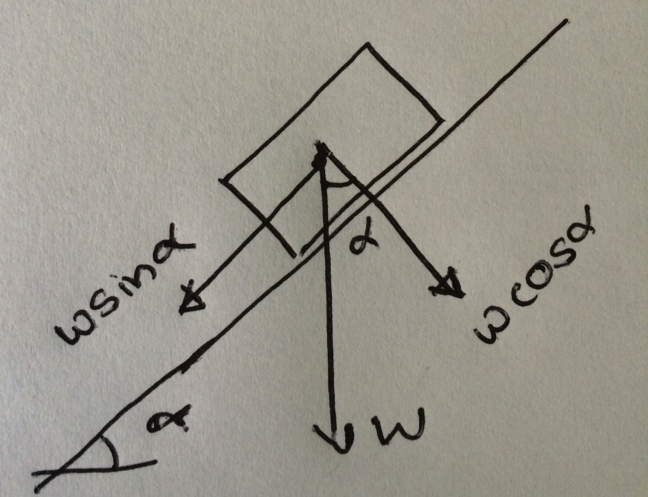 wsinα
α
wcosα
α
W